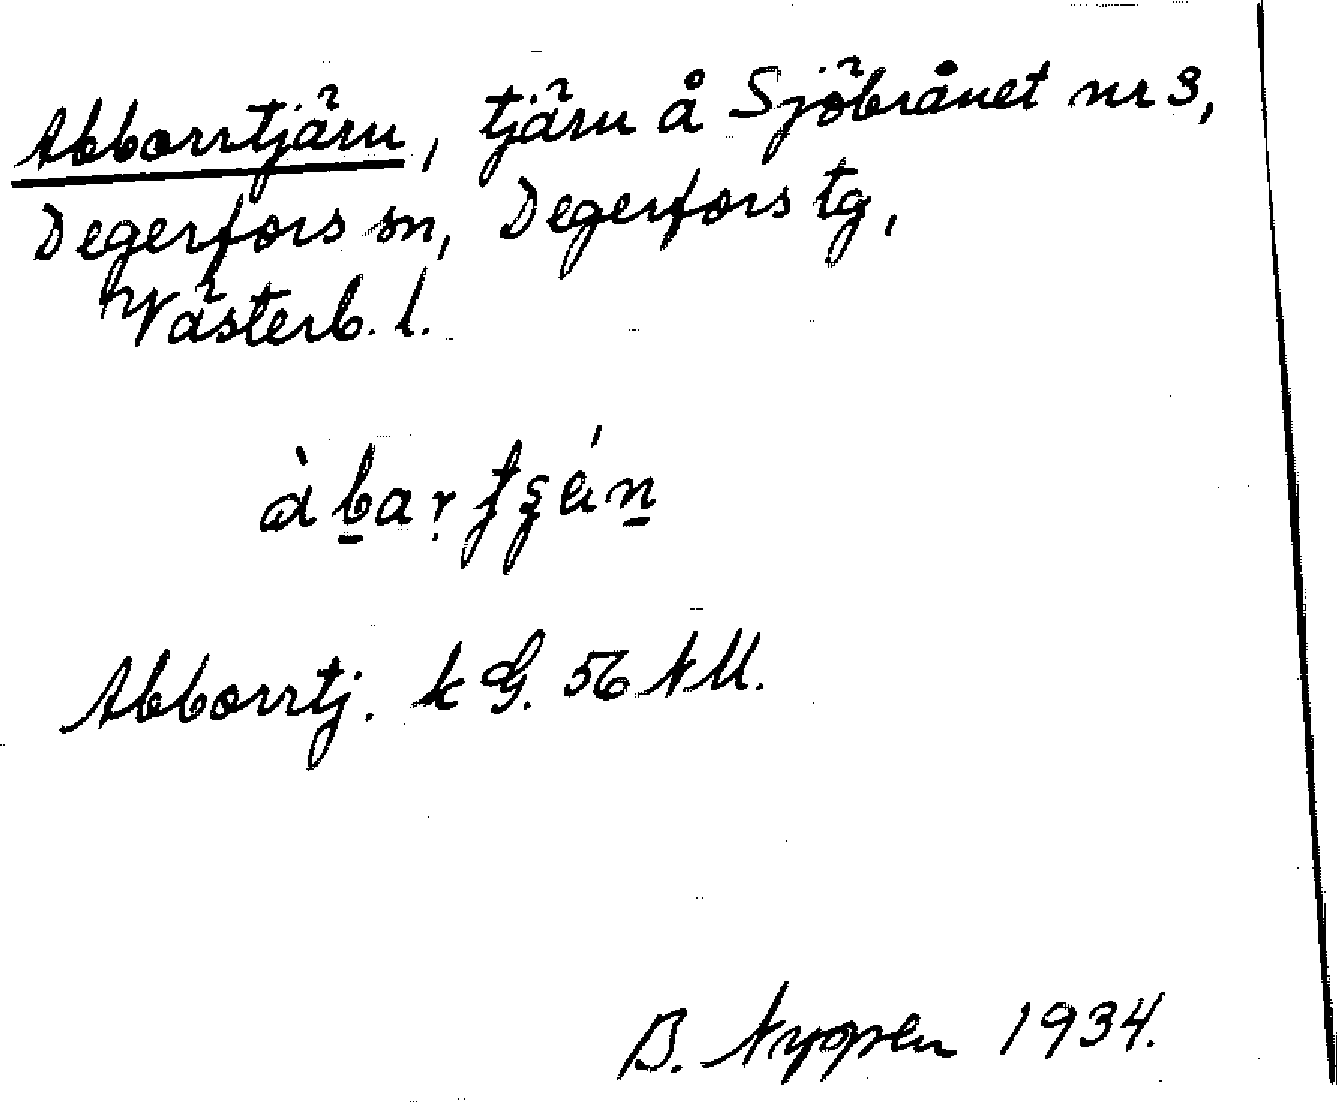 Abborrtjärn, tjärn å Sjöbrånet nr 3,
Degerfors sn, Degerfors tg,
Västerb. l.
Abborrtj. k G. 56 NU.
B. 1934.